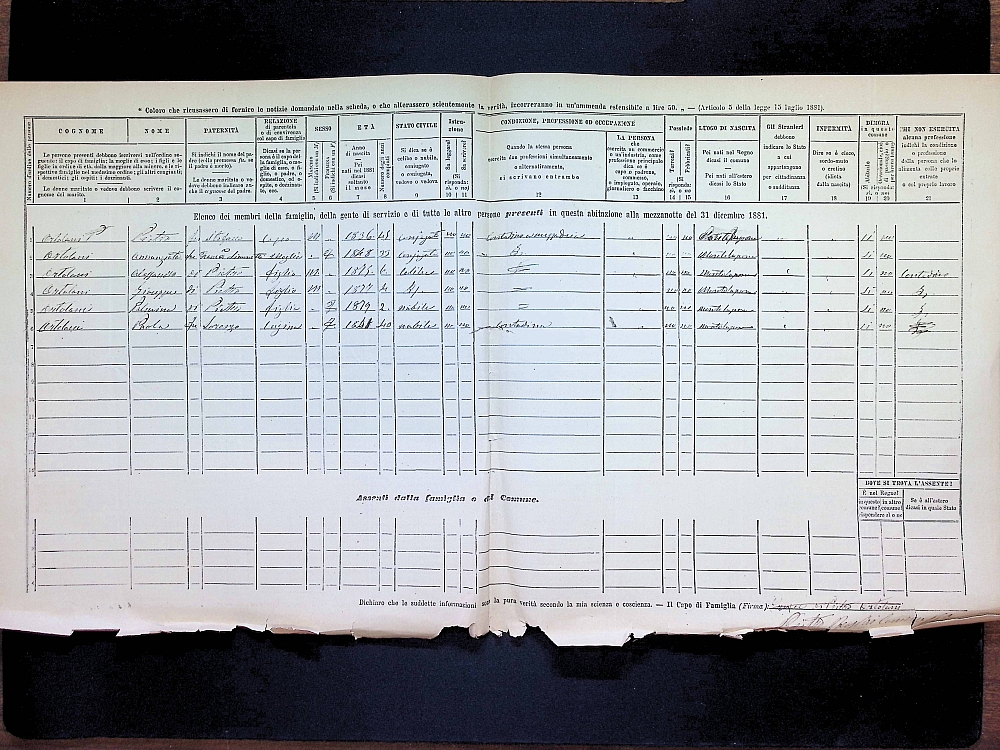 * Coloro che ricusassero di fornire le notizie domandate nella scheda, o che alterassero scientemente la verità, incorreranno in un'ammenda estensibile a lire 50. „ — (Articolo 5 della legge 15 luglio 1881).
COGNOME
NOME
PATERNITÀ
RELAZIONE di parentela o di convivenza col capo di famiglia
SESSO
ETÀ
STATO CIVILE
Istruzione
CONDIZIONE, PROFESSIONE OD OCCUPAZIONE
Possiede
LUOGO DI NASCITA
Gli Stranieri debbono indicare lo Stato a cui appartengono per cittadinanza o sudditanza
INFERMITÀ
DIMORA in questo comune
CHI NON ESERCITA alcuna professione indichi la condizione o professione della persona che lo alimenta colle proprie entrate o col proprio lavoro
Le persone presenti debbono iscriversi nell'ordine seguente: il capo di famiglia; la moglie di esso; i figli e le figlie in ordine di età, dalla maggiore alla minore, e le rispettive famiglie nel medesimo ordine; gli altri congiunti; i domestici; gli ospiti; i dozzinanti.
Le donne maritate o vedove debbono scrivere il cognome del marito.
Si indichi il nome del padre (colla premessa fu, se il padre è morto).
Le donne maritate o vedove debbono indicare anche il proprio nome del padre.
Anno di nascita
Pei nati nel 1881 dicasi soltanto il mese
Numero degli anni compiuti
Si dica se è celibe o nubile, coniugato o coniugata, vedovo o vedova
Quando la stessa persona esercita due professioni simultaneamente o alternativamente, si scrivano entrambe
LA PERSONA che esercita un commercio od un'industria, come professione principale dica se è capo o padrona, commesso, o impiegato, operaio, giornaliero o facchino
Terreni
Fabbricati
Pei nati nel Regno dicasi il comune
Pei nati all'estero dicasi lo Stato
Dire se è cieco, sordo-muto o cretino (idiota dalla nascita)
1 2 3 4 5 6 7 8 9 10 11 12 13 14 15 16 17 18 19 20 21
Elenco dei membri della famiglia, della gente di servizio e di tutte le altre persone presenti in questa abitazione alla mezzanotte del 31 dicembre 1881.
Ortolani Pietro fu Stefano Capo m 1836 45 conjugato no no no no si no
Ortolani Annunziata fu Moglie f 1848 33 conjugata no no no no Montelupone si no
Ortolani Alessandro di Pietro figlio m 1875 6 celibe no no no no Montelupone si no Contadino
Ortolani Giuseppe di Pietro figlio m 1877 4 no no no no Montelupone si no
Ortolani Palmina di Pietro figlia f 1879 2 nubile no no no no Montelupone si no
Ortolani Paola fu Lorenzo Cugina f 1841 40 nubile no no Contadina no no Montelupone si no
Assenti dalla famiglia o dal Comune.
DOVE SI TROVA L'ASSENTE?
È nel Regno?
in questo comune?
in altro comune?
Se è all'estero dicasi in quale Stato
Dichiaro che le suddette informazioni sono la pura verità secondo la mia scienza e coscienza. — Il Capo di Famiglia (Firma):
Pietro Ortolani